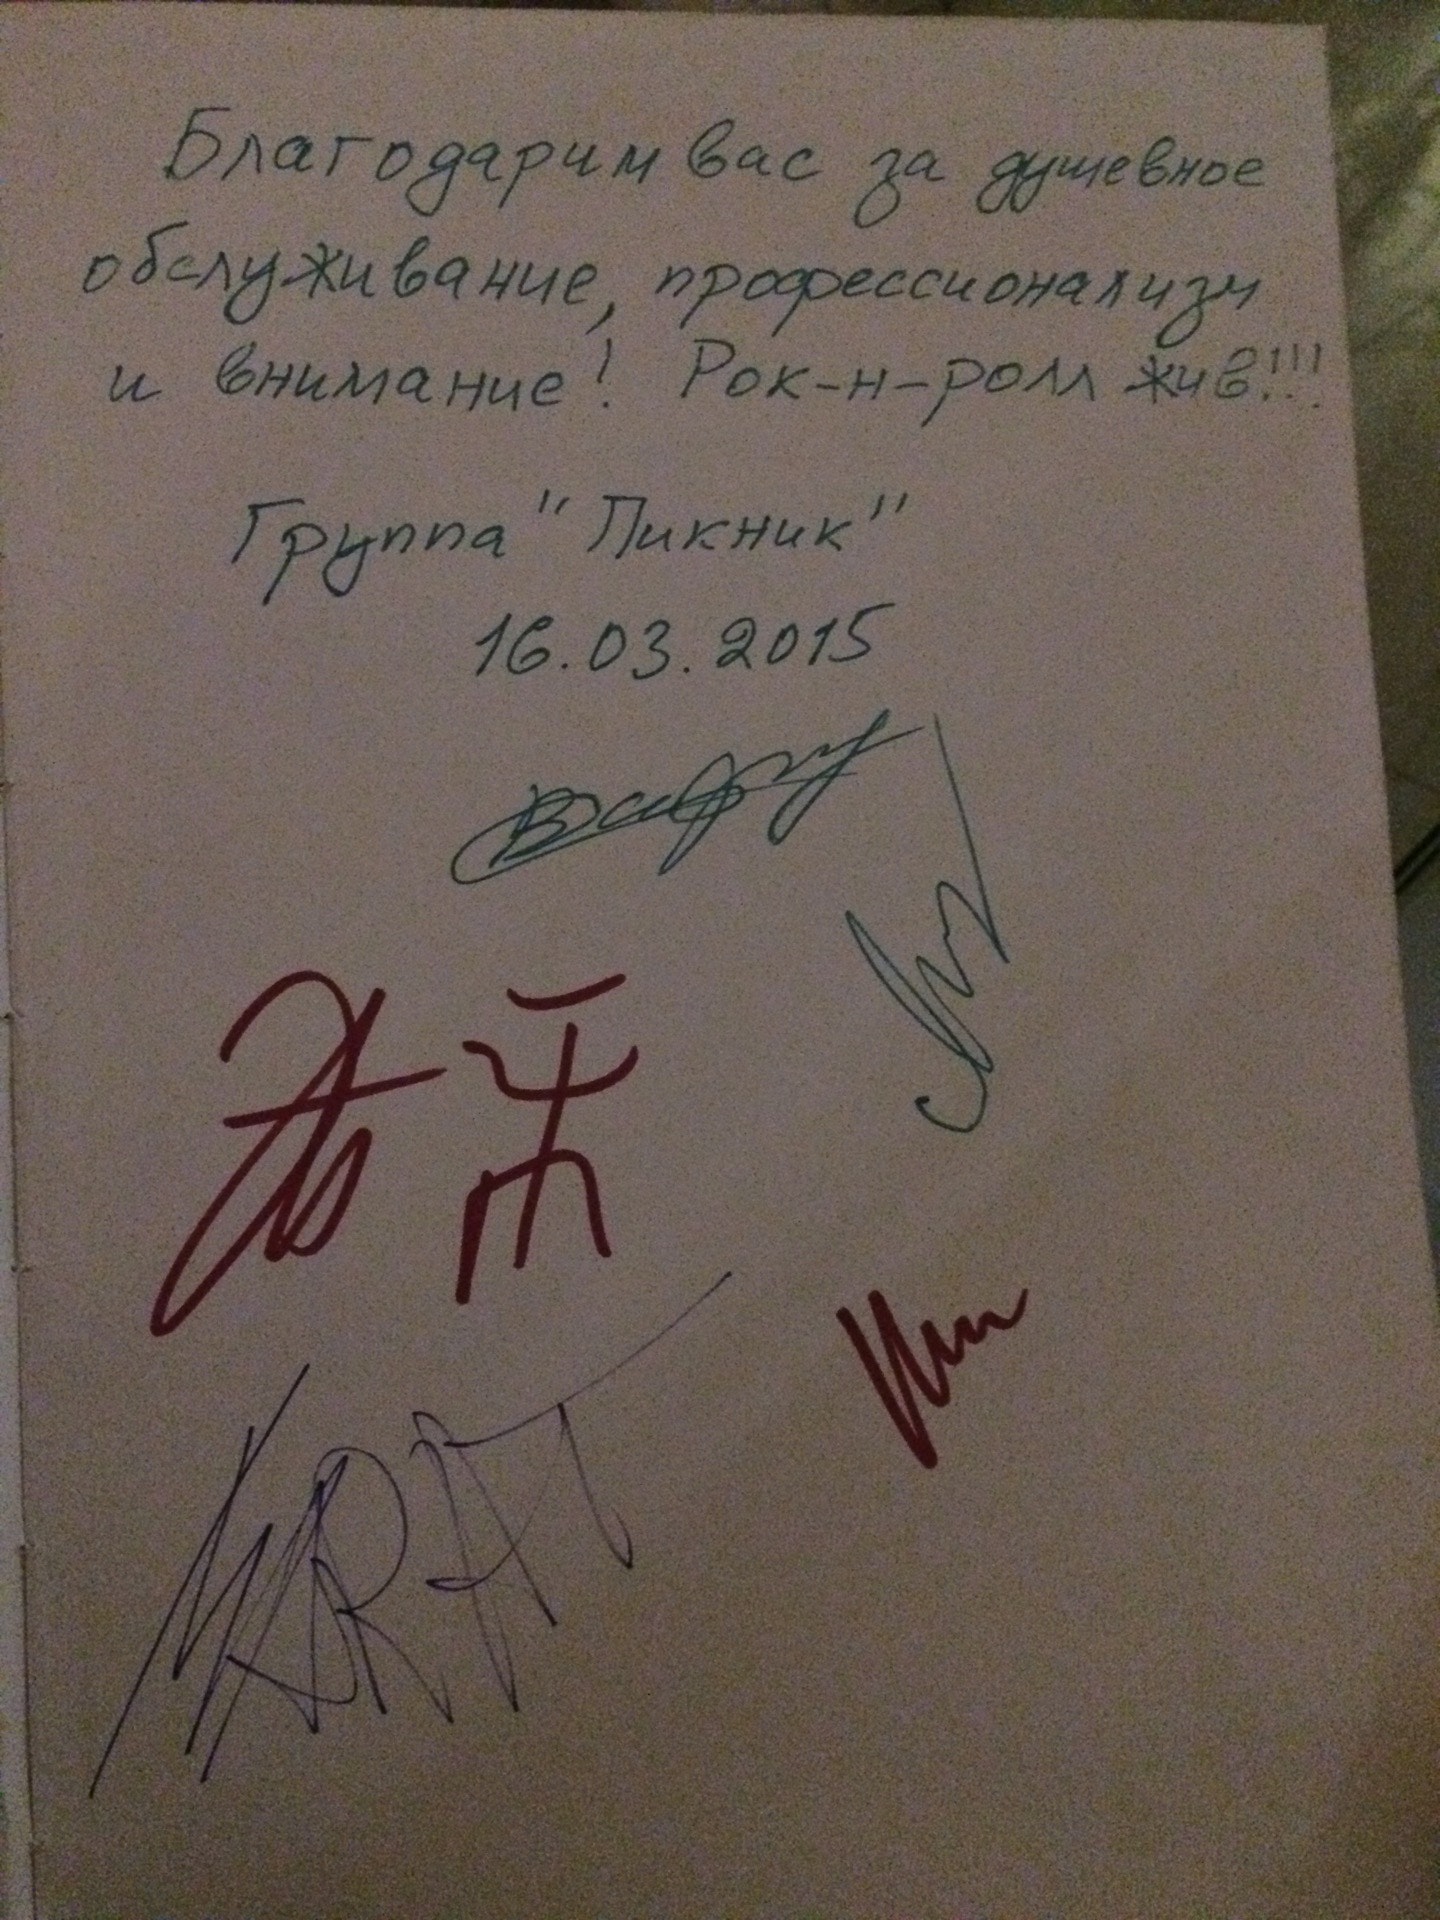 Благодарим вас за душевное
обслуживание, профессионализм
и внимание! Рок-н-ролл жив!!!
Группа "Пикник"
16.03.2015
MARAT